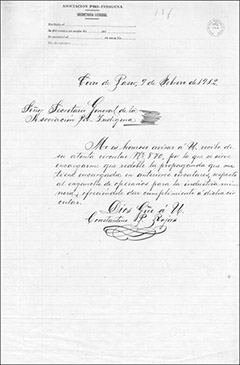 ASOCIACIÓN PRO-INDÍGENA
SECRETARÍA GENERAL
Cerro de Pasco, 7 de Febrero de 1912.
Señor Secretario General de la
Asociación Pro Indígena
Me es honroso avisar a U. recibo de
su atenta circular Nº 890, por la que se sirve
encargarme que redoble la propaganda que me
tiene encargada, en anteriores circulares, respecto
al enganche de operarios para la industria mi-
nera, ofreciéndole dar cumplimiento a dicha cir-
cular.
Dios Gue a U.
Constantino Rojas